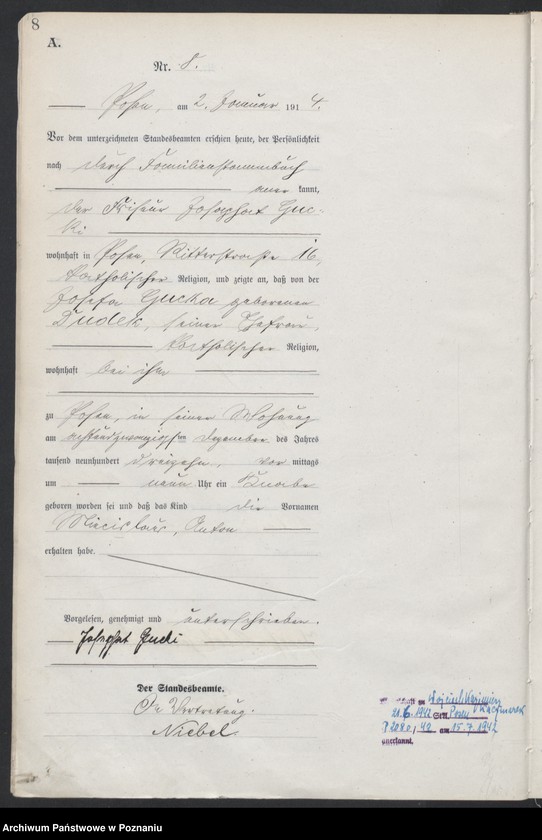 8
A.
Nr. 8.
Posen, am 2. Januar 1914.
Vor dem unterzeichneten Standesbeamten erschien heute, der Persönlichkeit
nach durch Familienstammbuch
anerkannt,
der Friseur Josaphat Guc-
ki
wohnhaft in Posen, Ritterstraße 16,
katholischer Religion, und zeigte an, daß von der
Josefa Gucka geborenen
Dudek, seiner Ehefrau,
katholischer Religion,
wohnhaft bei ihm
zu Posen, in seiner Wohnung
am achtundzwanzigsten Dezember des Jahres
tausend neunhundert dreizehn, vor mittags
um neun Uhr ein Knabe
geboren worden sei und daß das Kind die Vornamen
Miecislaus, Anton
erhalten habe.
Vorgelesen, genehmigt und unterschrieben.
Josaphat Gucki
Der Standesbeamte.
In Vertretung.
Niebel
21.6.1942 Posen
2080/42 am 15.7.1942
anerkannt.
Archiwum Państwowe w Poznaniu